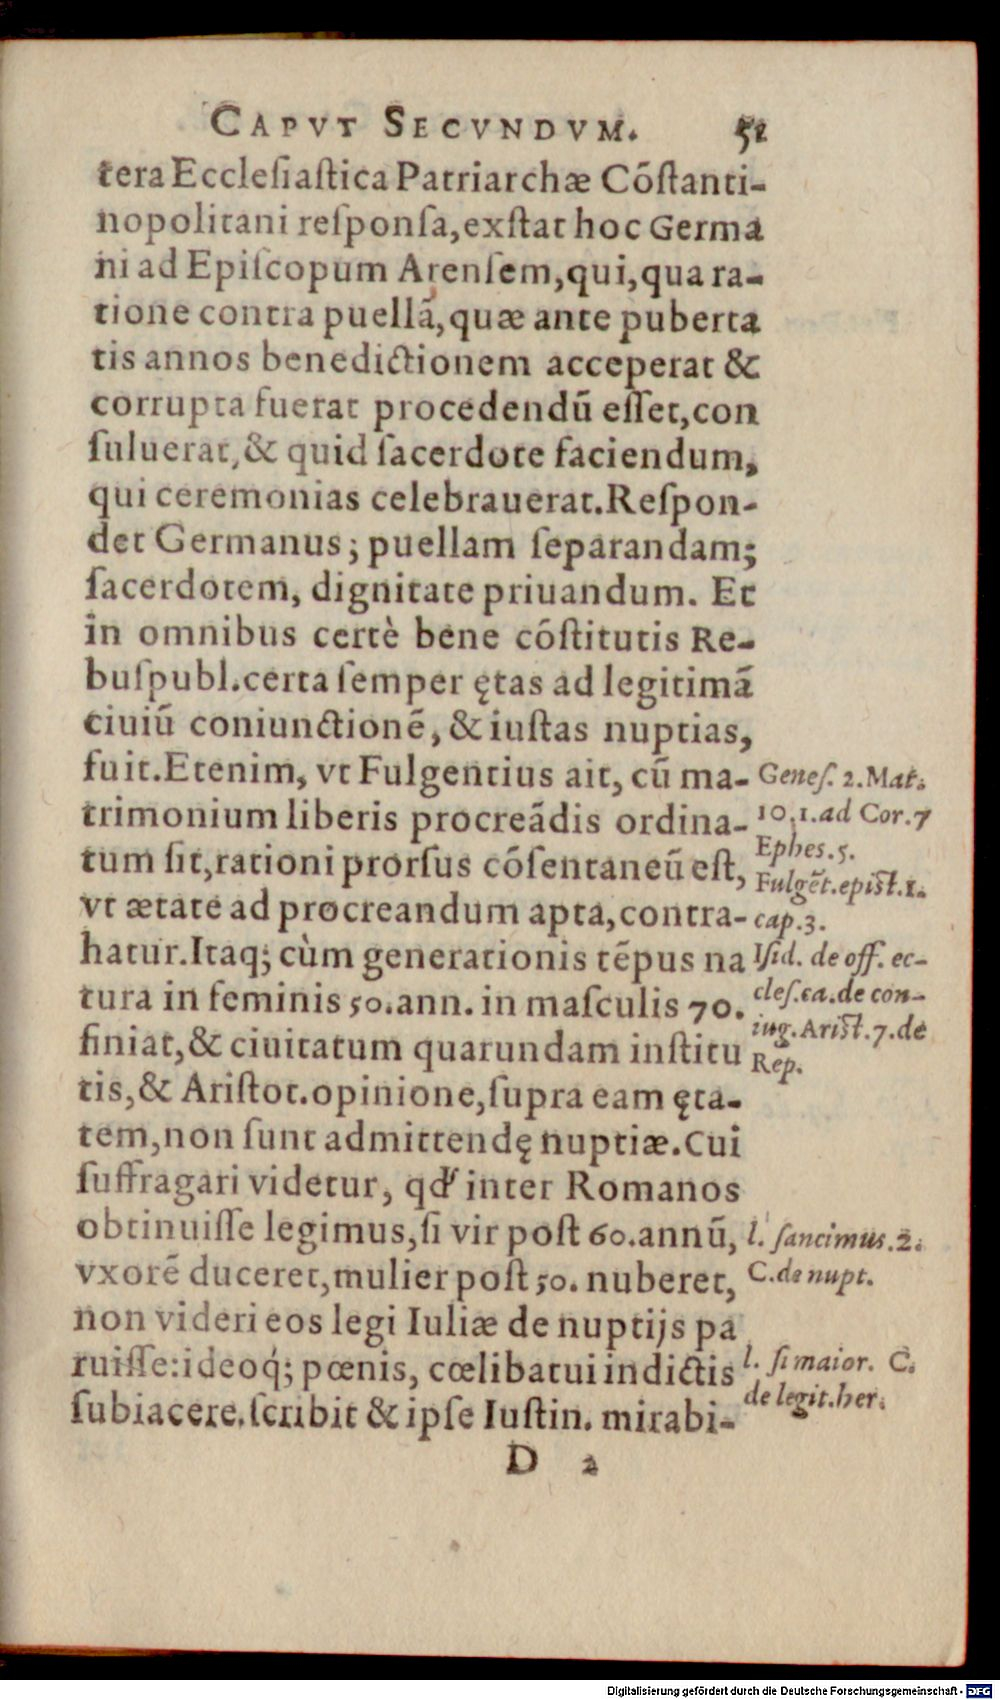 CAPVT SECVNDVM. 51
tera Ecclesiastica Patriarchæ Cõstanti-
nopolitani responsa, exstat hoc Germa
ni ad Episcopum Arensem, qui, qua ra-
tione contra puellã, quæ ante puberta
tis annos benedictionem acceperat &
corrupta fuerat procedendũ esset, con
suluerat, & quid sacerdote faciendum,
qui ceremonias celebrauerat. Respon-
det Germanus; puellam separandam;
sacerdotem, dignitate priuandum. Et
in omnibus certè bene cõstitutis Re-
buspubl. certa semper ętas ad legitimã
ciuiũ coniunctionẽ, & iustas nuptias,
fuit. Etenim, vt Fulgentius ait, cũ ma-
trimonium liberis procreãdis ordina-
tum sit, rationi prorsus cõsentaneũ est,
vt ætate ad procreandum apta, contra-
hatur. Itaq; cùm generationis tẽpus na
tura in feminis 50. ann. in masculis 70.
finiat, & ciuitatum quarundam institu
tis, & Aristot. opinione, supra eam ęta-
tem, non sunt admittendę nuptiæ. Cui
suffragari videtur, qd' inter Romanos
obtinuisse legimus, si vir post 60. annũ,
vxorẽ duceret, mulier post 50. nuberet,
non videri eos legi Iuliæ de nuptijs pa
ruisse: ideoq́; pœnis, cœlibatui indictis
subiacere. scribit & ipse Iustin. mirabi-
D 2
Genes. 2. Mat.
10. 1. ad Cor. 7
Ephes. 5.
Fulgẽt. epist. 1.
cap. 3.
Isid. de off. ec-
cles. ca. de con-
iug. Arist. 7. de
Rep.
l. sancimus. 2.
C. de nupt.
l. si maior. C.
de legit. her.
Digitalisierung gefördert durch die Deutsche Forschungsgemeinschaft - DFG